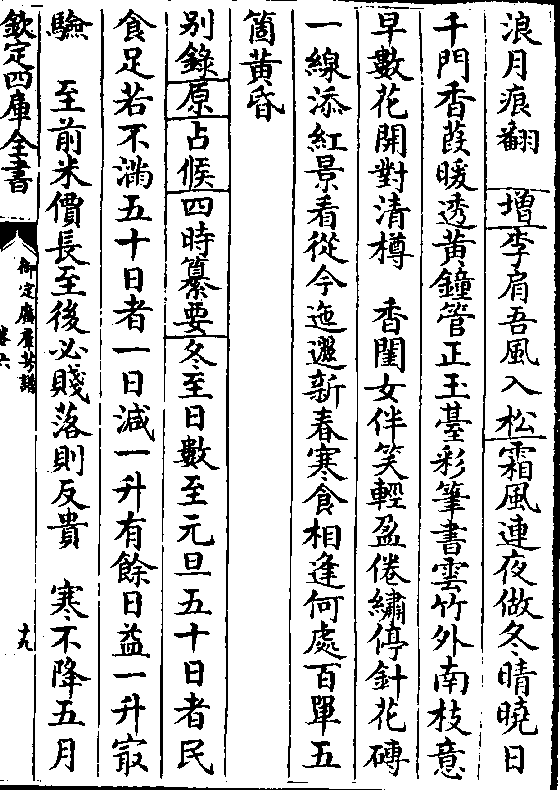 浪月痕翻　增李肩吾風入松霜風連夜做冬晴曉日
千門香葭暖透黃鐘管正玉臺彩筆書雲竹外南枝意
早數花開對清樽　香閨女伴笑輕盈倦繡停針花磚
一線添紅景看從今迤邐新春寒食相逢何處百單五
箇黃昏
别錄原占候四時纂要冬至日數至元旦五十日者民
食足若不滿五十日者一日減一升有餘日益一升㝡
驗　至前米價長至後必賤落則反貴　寒不降五月
欽定四庫全書
御定廣羣芳譜
卷六
十九